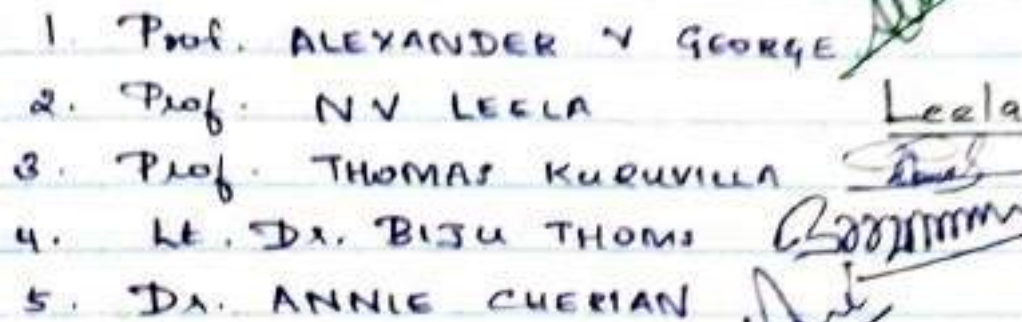 1. Prof. ALEXANDER V GEORGE
2. Prof. N V LEELA Leela
3. Prof. THOMAS KURUVILLA
4. Lt. Dr. BIJU THOMS
5. Dr. ANNIE CHERIAN